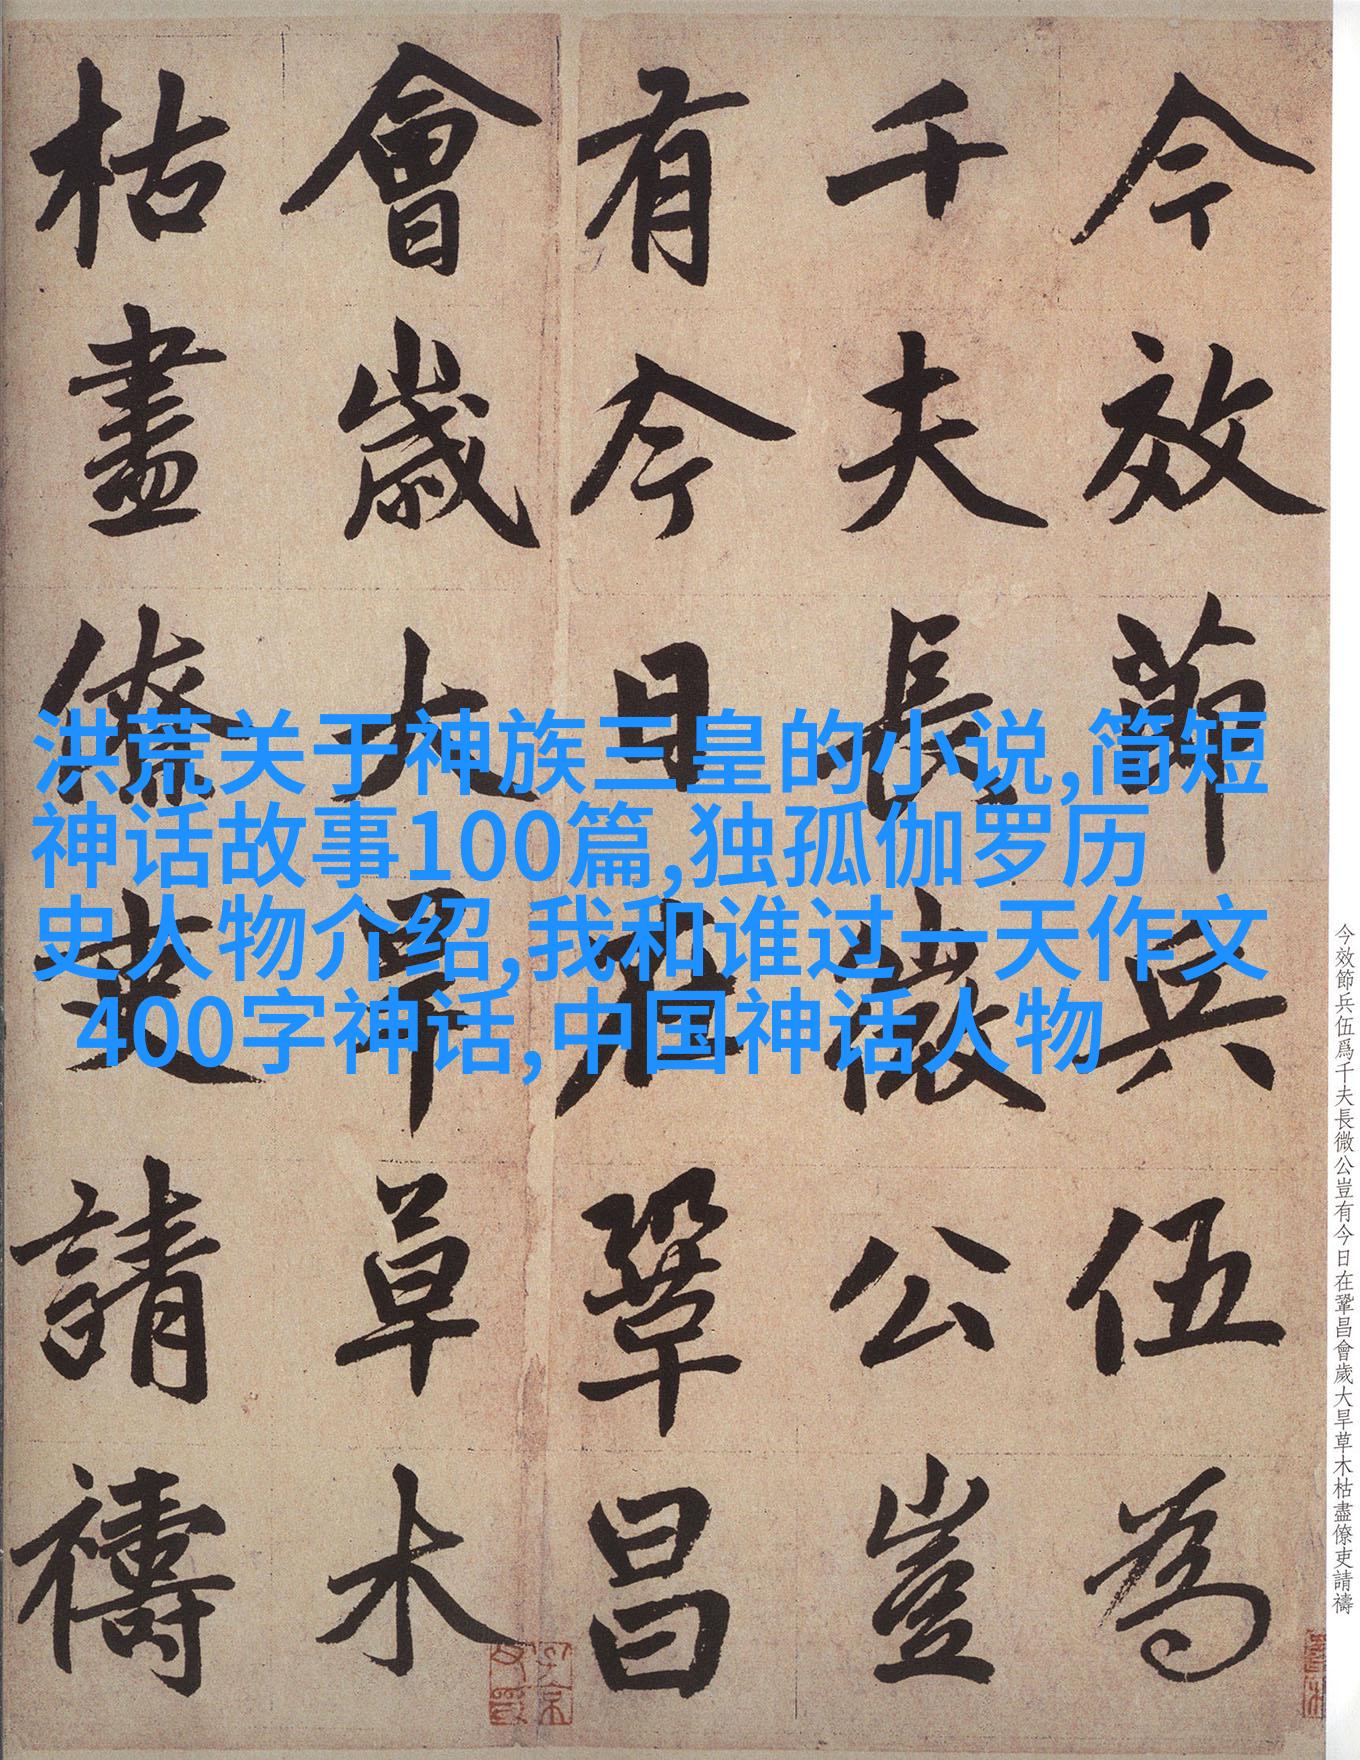 今效節兵伍為
千夫長微公豈
有今日在鞏昌
會歲大旱草木
枯盡僚吏請禱
洪荒关于神族三皇的小说,简短
神话故事100篇,独孤伽罗历
史人物介绍,我和谁过一天作文
400字神话,中国神话人物
今效節兵伍爲千夫長微公豈有今日在鞏昌會歲大旱草木枯盡僚吏請禱